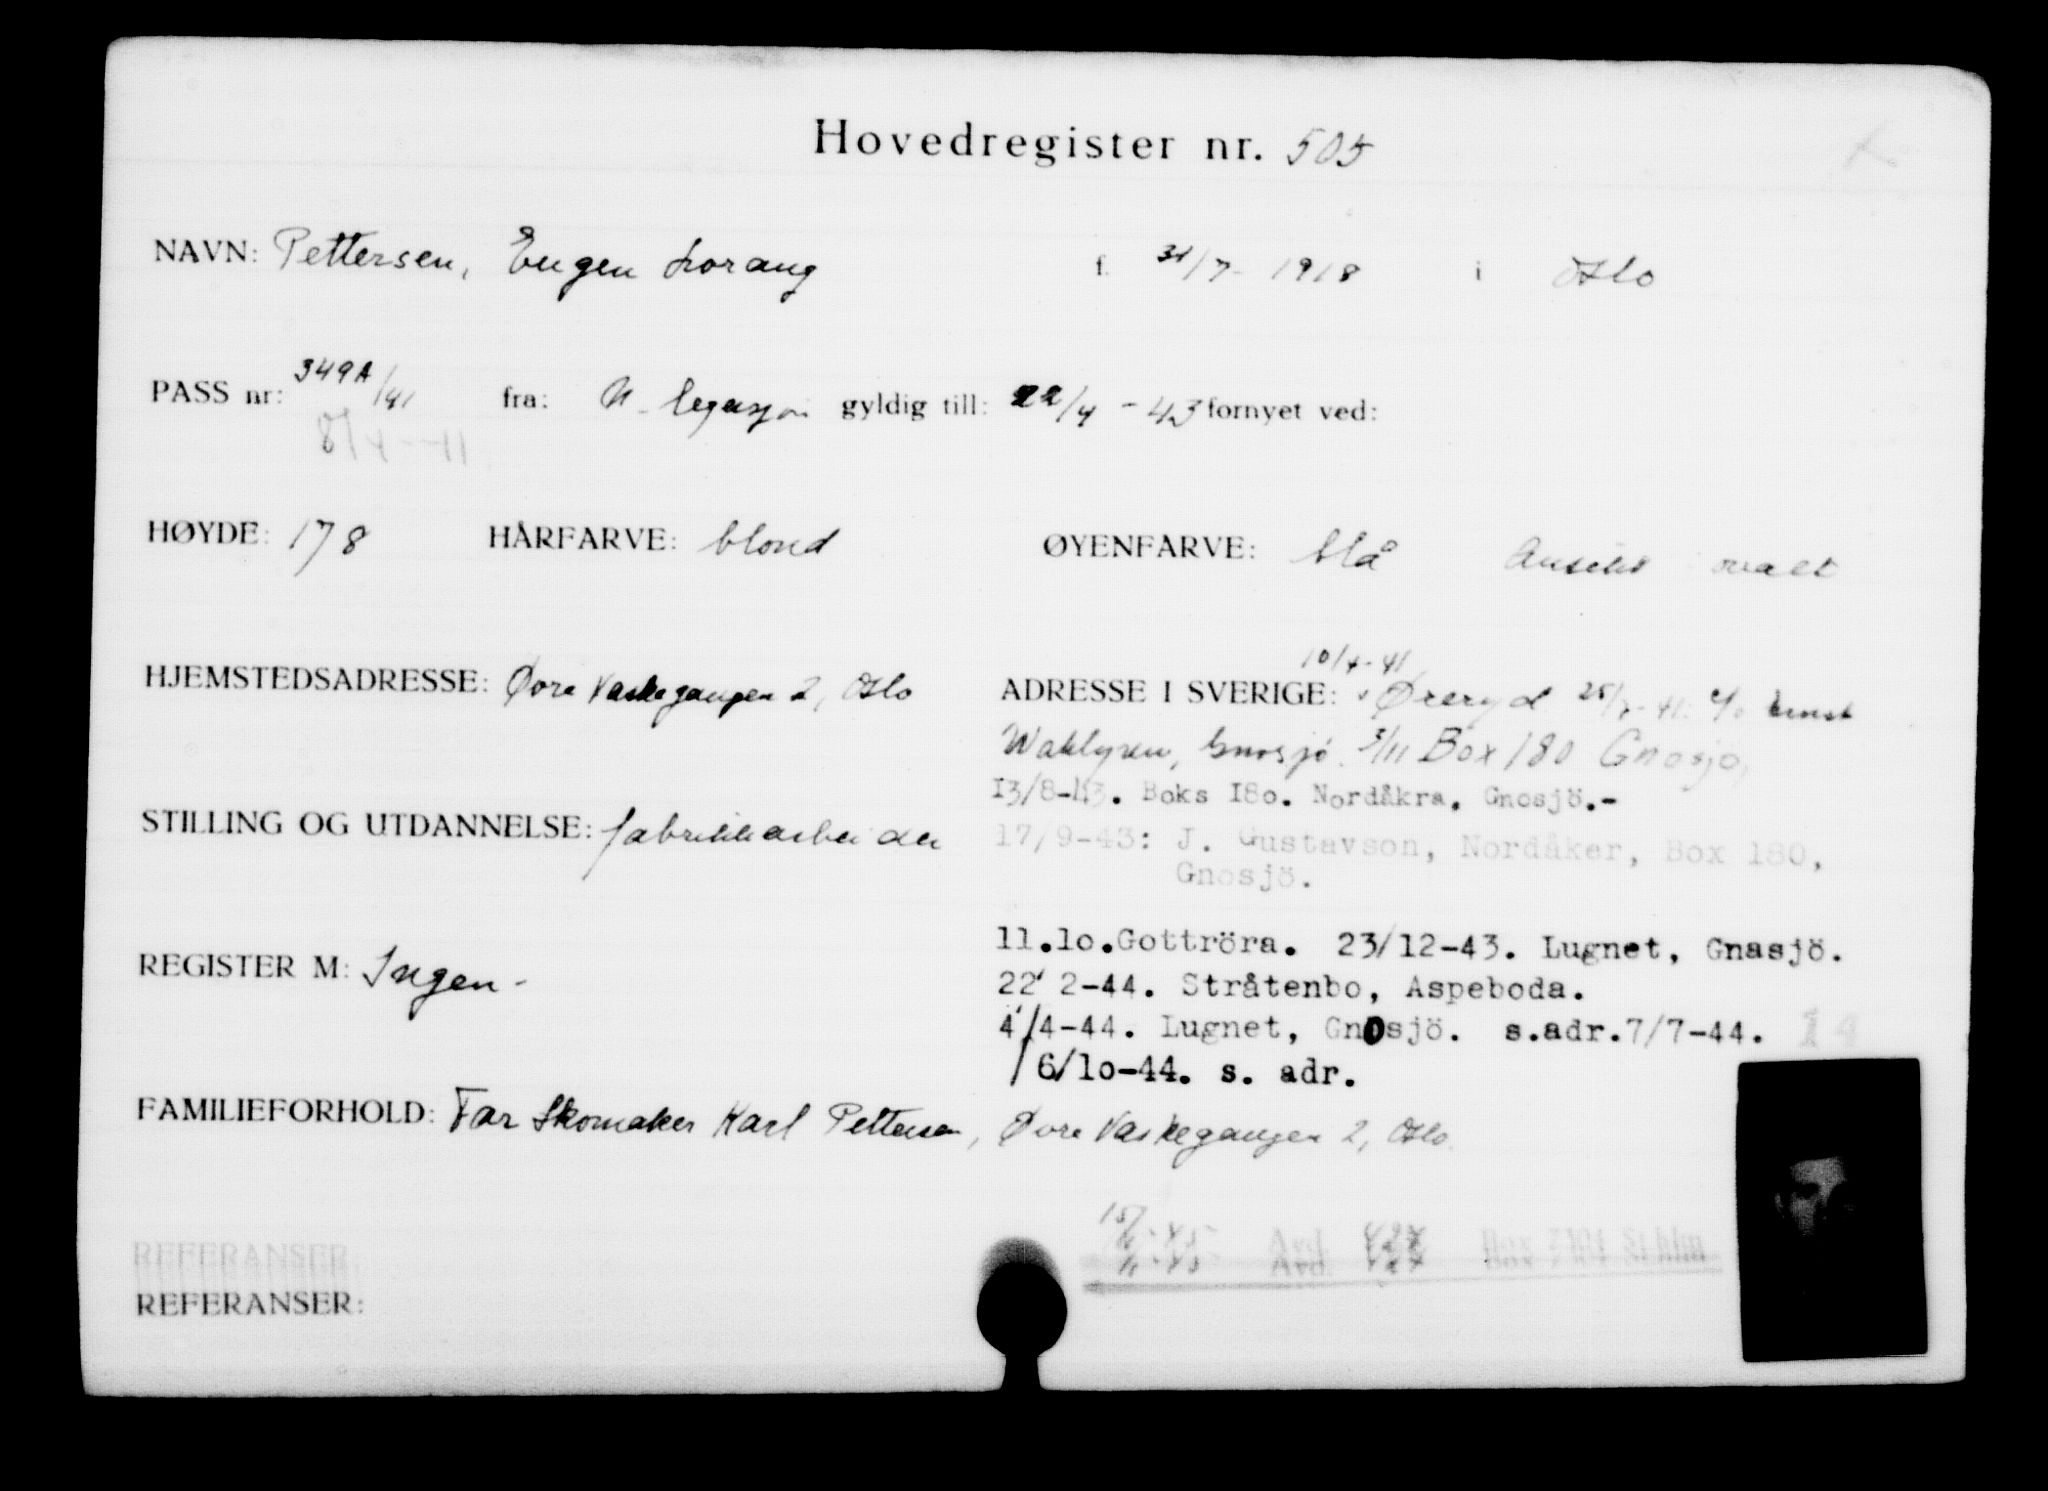 Hovedregister nr. 505
NAVN: Pettersen, Eugen Lorang f. 31/7-1918 i Oslo
PASS nr: 349A/41 fra: N. legasjon gyldig till: 22/4-43 fornyet ved:
8/4-41
HØYDE: 178 HÅRFARVE: blond ØYENFARVE: blå Ansikt ovalt
HJEMSTEDSADRESSE: Øvre Vaskegangen 2, Oslo
10/4-41
ADRESSE I SVERIGE: Øreryd 25/7-41. c/o Ernst
Wahlgren, Gnosjö. 3/11 Box 180 Gnosjö,
13/8-43. Boks 18o. Nordåkra, Gnosjö.-
STILLING OG UTDANNELSE: fabrikkarbeider
17/9-43: J. Gustavson, Nordåker, Box 180,
Gnosjö.
REGISTER M: Ingen-
11.1o.Gottröra. 23/12-43. Lugnet, Gnasjö.
22/2-44. Stråtenbo, Aspeboda.
4/4-44. Lugnet, Gnosjö. s.adr.7/7-44. 14
6/1o-44. s. adr.
FAMILIEFORHOLD: Far Skomaker Karl Pettersen, Øvre Vaskegangen 2, Oslo.
Box 7104 Sthlm
REFERANSER:
REFERANSER: